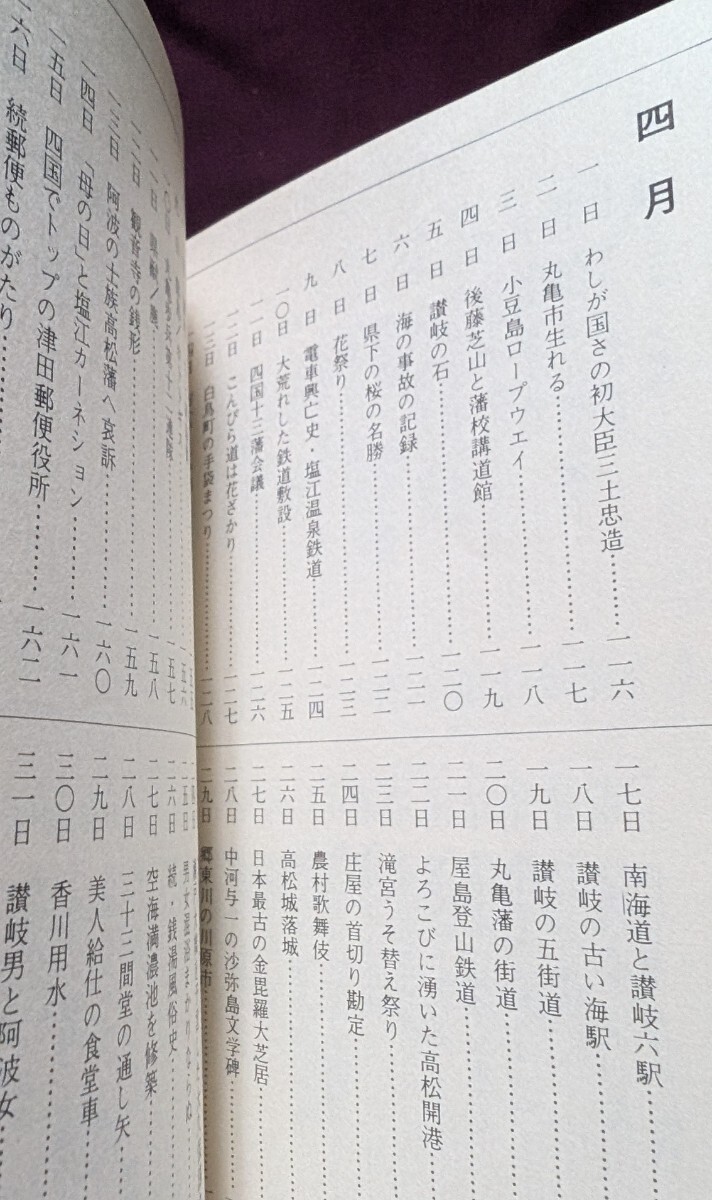 四月
一日 わしが国さの初大臣三土忠造……一一六
二日 丸亀市生れる……一一七
三日 小豆島ロープウエイ……一一八
四日 後藤芝山と藩校講道館……一一九
五日 讃岐の石……一二〇
六日 海の事故の記録……一二一
七日 県下の桜の名勝……一二二
八日 花祭り……一二三
九日 電車興亡史・塩江温泉鉄道……一二四
一〇日 大荒れした鉄道敷設……一二五
一一日 四国十三藩会議……一二六
一二日 こんぴら道は花ざかり……一二七
一三日 白鳥町の手袋まつり……一二八
一七日 南海道と讃岐六駅……
一八日 讃岐の古い海駅……
一九日 讃岐の五街道……
二〇日 丸亀藩の街道……
二一日 屋島登山鉄道……
二二日 よろこびに湧いた高松開港
二三日 滝宮うそ替え祭り……
二四日 庄屋の首切り勘定……
二五日 農村歌舞伎……
二六日 高松城落城……
二七日 日本最古の金毘羅大芝居
二八日 中河与一の沙弥島文学碑……
二九日 郷東川の川原市……
一二日 観音寺の銭形……一五八
一三日 阿波の士族高松藩へ哀訴……一五九
一四日 「母の日」と塩江カーネション……一六〇
一五日 四国でトップの津田郵便役所……一六一
一六日 続郵便ものがたり……一六二
二五日 男女混浴まかりならぬ
二六日 続・銭湯風俗史……
二七日 空海満濃池を修築……
二八日 三十三間堂の通し矢……
二九日 美人給仕の食堂車……
三〇日 香川用水……
三一日 讃岐男と阿波女